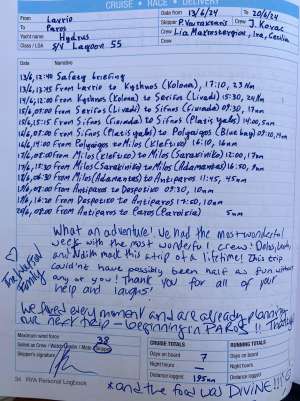 CRUISE • RACE • DELIVERY
From Lavrio Date from 13/6/24 To 20/6/24
To Paros Skipper P. Vourazanis Crew J. Kovac
Yacht name Hydrus Crew Lia Makrostergiou, Ira, Cecilia
Class / LOA S/Y Lagoon 55 Crew
Date Narrative
13/6, 12:40 Safety briefing
13/6, 13:45 From Lavrio to Kythnos (Kolona), 17:10, 23 nm
14/6, 12:00 From Kythnos (Kolona) to Serifos (Livadi) 15:30, 24nm
15/6, 07:00 From Serifos (Livadi) to Sifnos 07:30, 17nm
15/6, 15:15 From Sifnos to Sifnos (Platis yalos) 14:00, 5nm
16/6, 07:00 From Sifnos (Platis yalos) to Polyaigos (Blue bay) 07:10, 14nm
16/6, 14:00 From Polyaigos to Milos (Klefuzio) 16:10, 16nm
17/6, 08:00 From Milos (Klefuzio) to Milos (Sarakiniko) 12:00, 17nm
17/6, 13:30 From Milos (Sarakiniko) to Milos (Adamantas) 16:30, 7nm
18/6, 06:00 From Milos (Adamantos) to Antiparos 11:45, 45nm
19/6, 07:00 From Antiparos to Despotiko 07:30, 10nm
19/6, 16:20 From Despotiko to Antiparos 17:50, 10nm
20/6, 07:00 From Antiparos to Paros (Paroikia) 5nm
What an adventure! We had the most wonderful
week with the most wonderful crew! Dolos, Lewly,
and Natih made this a trip of a lifetime! This trip
couldn't have possibly been half as fun without
any of you! Thank you for all of your
help and laughs!
The Family
We loved every moment and are already planning
our next trip - beginning in PAROS!! Thank you!
Maximum wind force 38
Sailed as Crew / Watch Leader / Mate / Skipper
Skipper's signature
CRUISE TOTALS RUNNING TOTALS
Days on board 7 Days on board
Night hours – Night hours
Distance logged 195nm Distance logged
34 RYA Personal Logbook
*and the food was DIVINE!!!